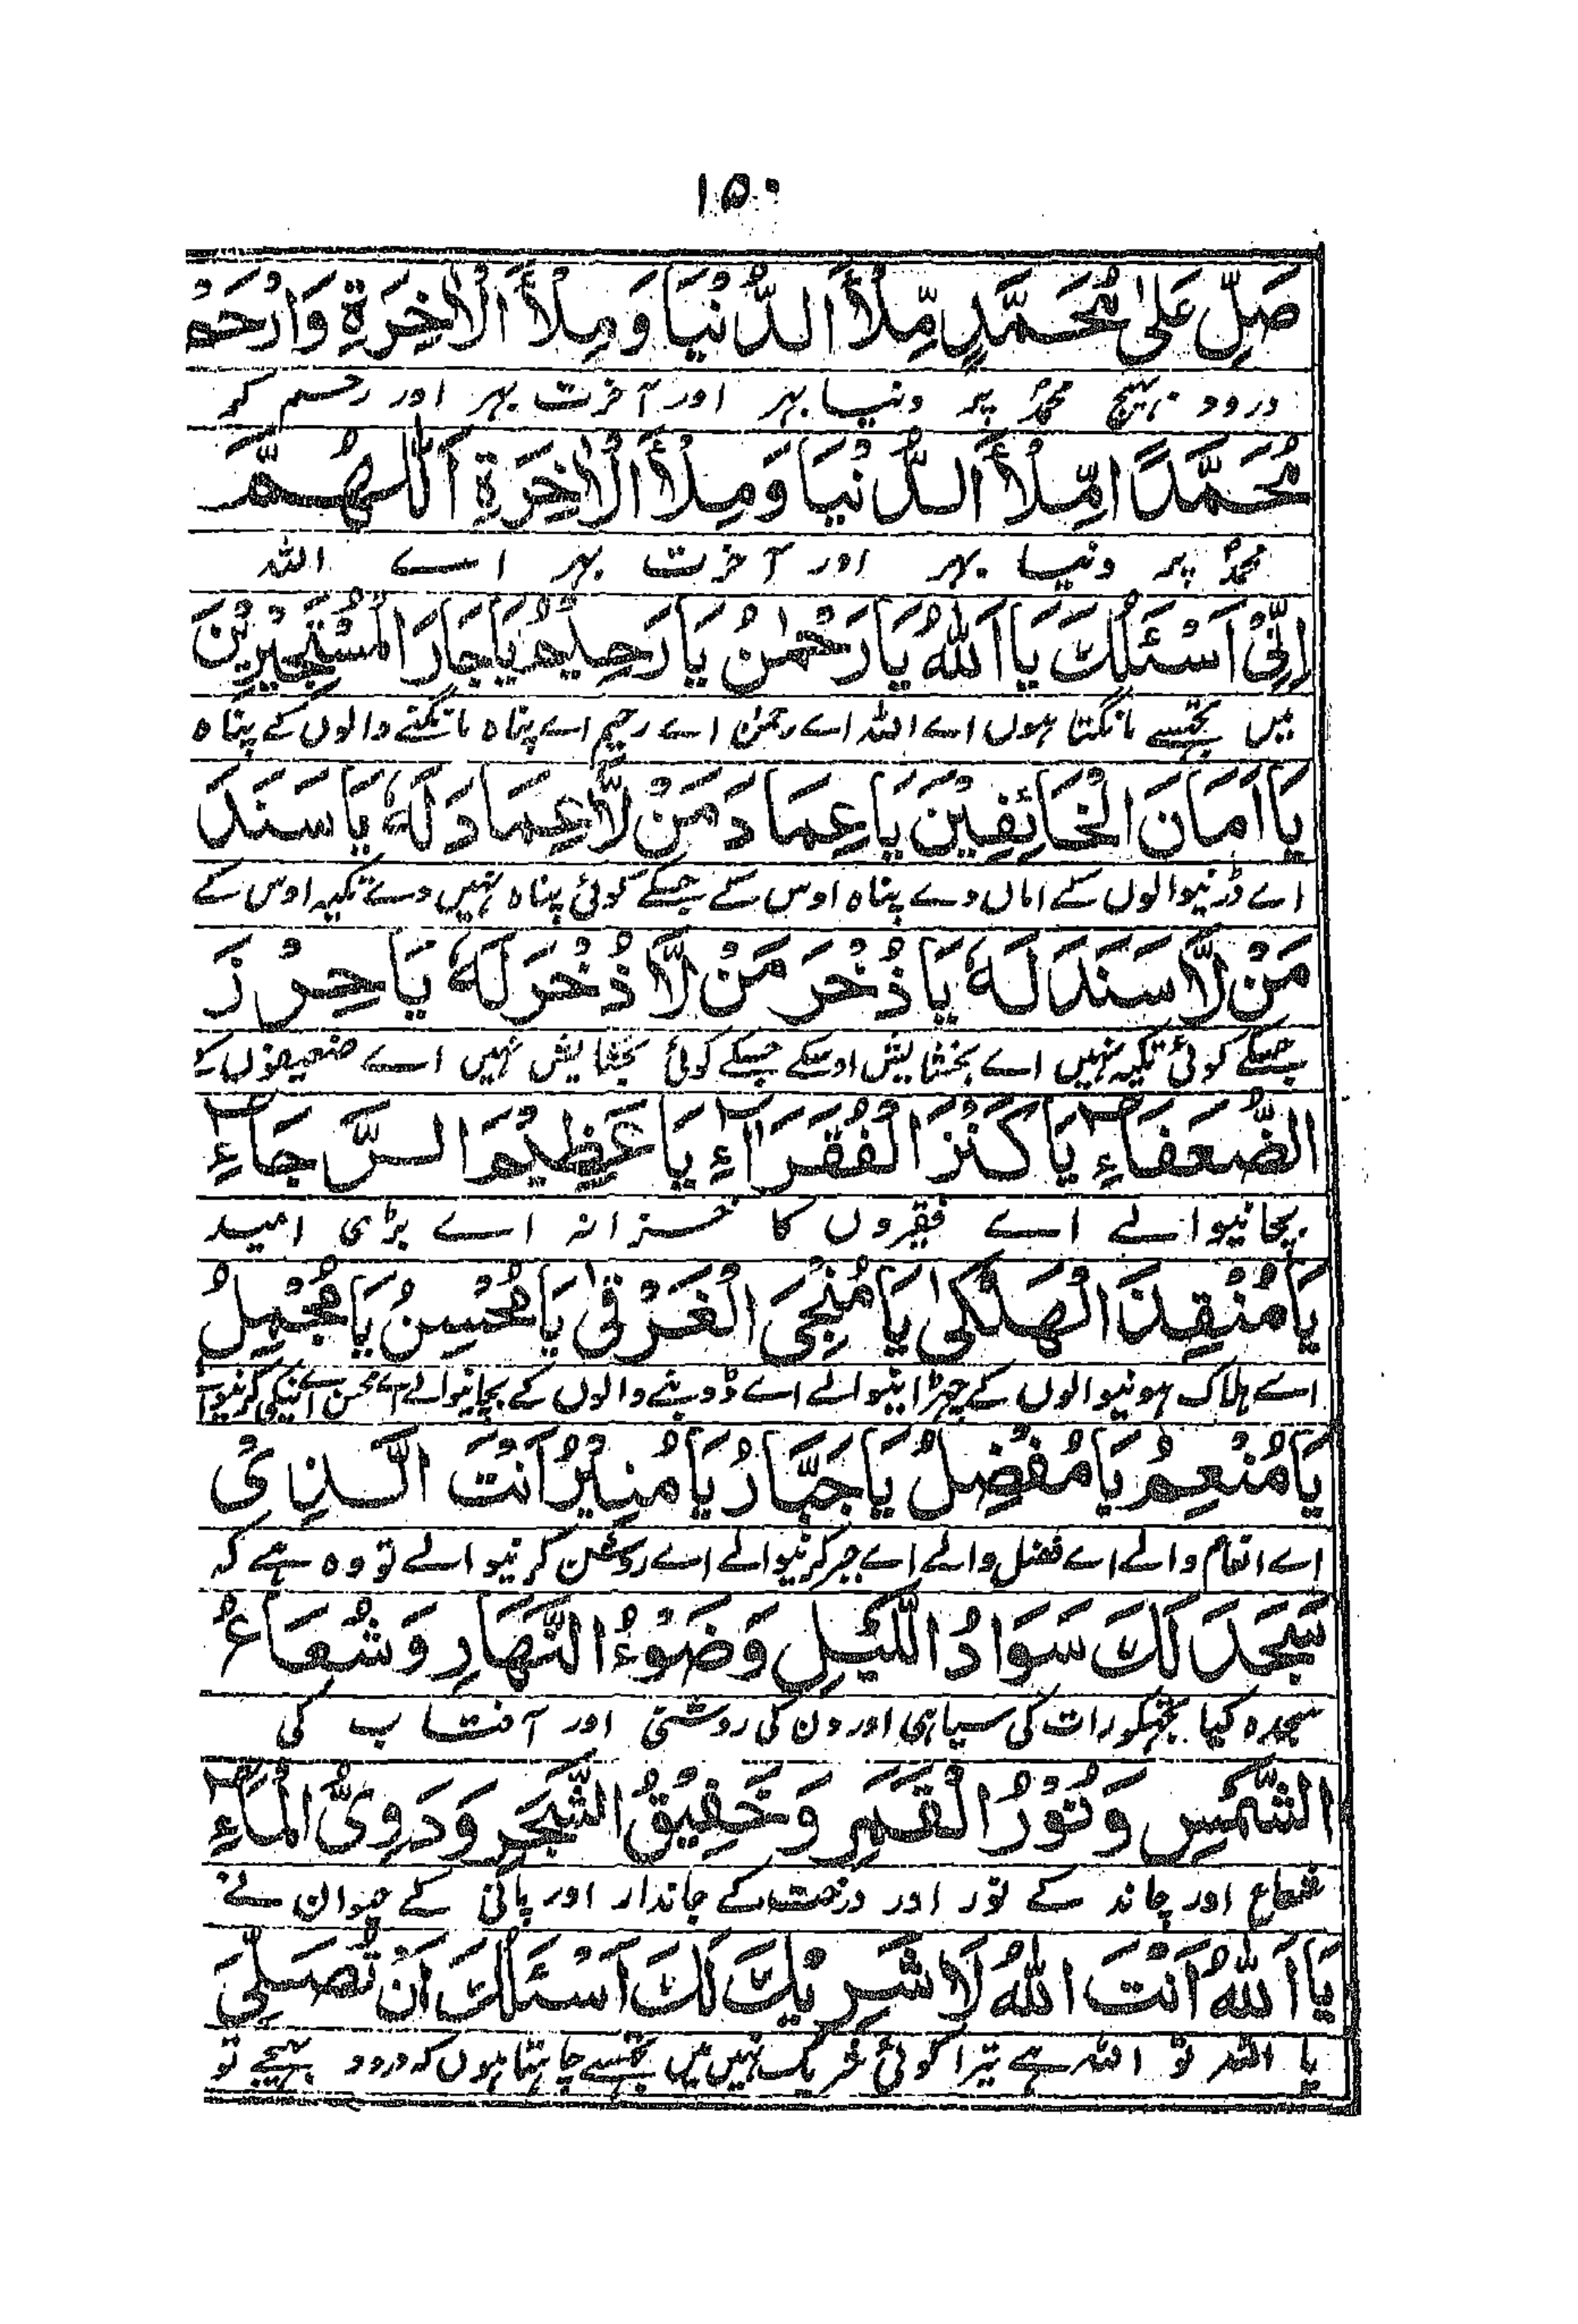 ۱۵۰
صَلِّ عَلٰى مُحَمَّدٍ مِّلْأَ الدُّنْيَا وَمِلْأَ الْاٰخِرَةِ وَارْحَمْ
درود بہیج محمدؐ پر دنیا بہر اور آخرت بہر اور رحم کر
مُحَمَّدًا مِّلْأَ الدُّنْيَا وَمِلْأَ الْاٰخِرَةِ اَللّٰهُمَّ
محمدؐ پر دنیا بہر اور آخرت بہر اے اللہ
اِنِّىْ اَسْئَلُكَ يَا اَللّٰهُ يَا رَحْمٰنُ يَا رَحِيْمُ يَا جَارَ الْمُسْتَجِيْرِيْنَ
میں تجھسے مانگتا ہوں اے اللہ اے رحمٰن اے رحیم اے پناہ مانگنے والوں کے پناہ
يَا اَمَانَ الْخَائِفِيْنَ يَا عِمَادَ مَنْ لَّا عِمَادَ لَهٗ يَا سَنَدَ
اے ڈرنیوالوں کے اماں وے پناہ اوس کے جسکے کوئی پناہ نہیں وے تکیہ اوس کے
مَنْ لَّا سَنَدَ لَهٗ يَا ذُخْرَ مَنْ لَّا ذُخْرَ لَهٗ يَا حِرْزَ
جسکے کوئی تکیہ نہیں اے بخشایش اوسکے جسکے کوئی بخشایش نہیں اے ضعیفوں کے
الضُّعَفَآءِ يَا كَنْزَ الْفُقَرَآءِ يَا عَظِيْمَ الرَّجَآءِ
بچانیوالے اے فقیروں کا خزانہ اے بڑی امید
يَا مُنْقِذَ الْهَلْكٰى يَا مُنْجِىَ الْغَرْقٰى يَا مُحْسِنُ يَا مُجْمِلُ
اے ہلاک ہونیوالوں کے چہڑانیوالے اے ڈوبنے والوں کے بچانیوالے اے محسن اے نیکی کرنیوالے
يَا مُنْعِمُ يَا مُفْضِلُ يَا جَبَّارُ يَا مُنِيْرُ اَنْتَ الَّذِىْ
اے انعام والے اے فضل والے اے جبر کرنیوالے اے روشن کرنیوالے تو وہ ہے کہ
سَجَدَ لَكَ سَوَادُ اللَّيْلِ وَضَوْءُ النَّهَارِ وَشُعَاعُ
سجدہ کیا تجھکو رات کی سیاہی اور دن کی روشنی اور آفتاب کی
الشَّمْسِ وَنُوْرُ الْقَمَرِ وَخَفِيْقُ الشَّجَرِ وَدَوِىُّ الْمَآءِ
شعاع اور چاند کے نور اور درخت کے جاندار اور پانی کے حیوان نے
يَا اَللّٰهُ اَنْتَ اللّٰهُ لَا شَرِيْكَ لَكَ اَسْئَلُكَ اَنْ تُصَلِّىَ
یا اللہ تو اللہ ہے تیرا کوئی شریک نہیں میں تجھسے چاہتا ہوں کہ درود بہیجے تو